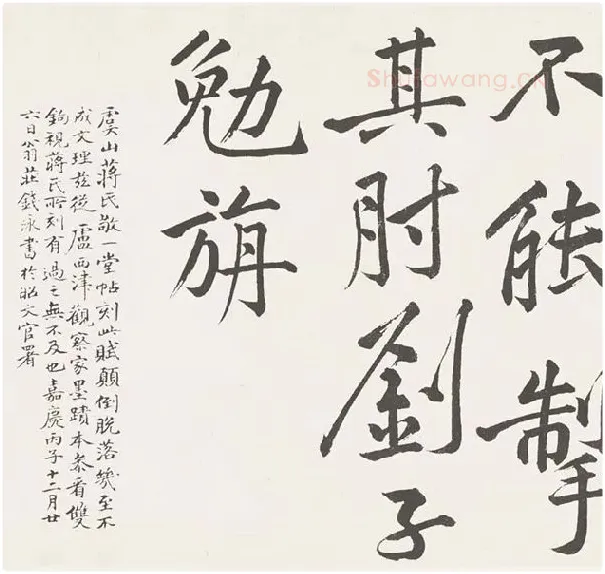 不能掣
其肘劉子
勉旃
虞山蔣氏敬一堂帖刻此賦顛倒脫落幾至不
成文理茲從盧西津觀察家墨蹟本參看雙
鉤視蔣氏所刻有過之無不及也嘉慶丙子十二月廿
六日翁莊錢泳書於昭文官署
Shufawang.cn